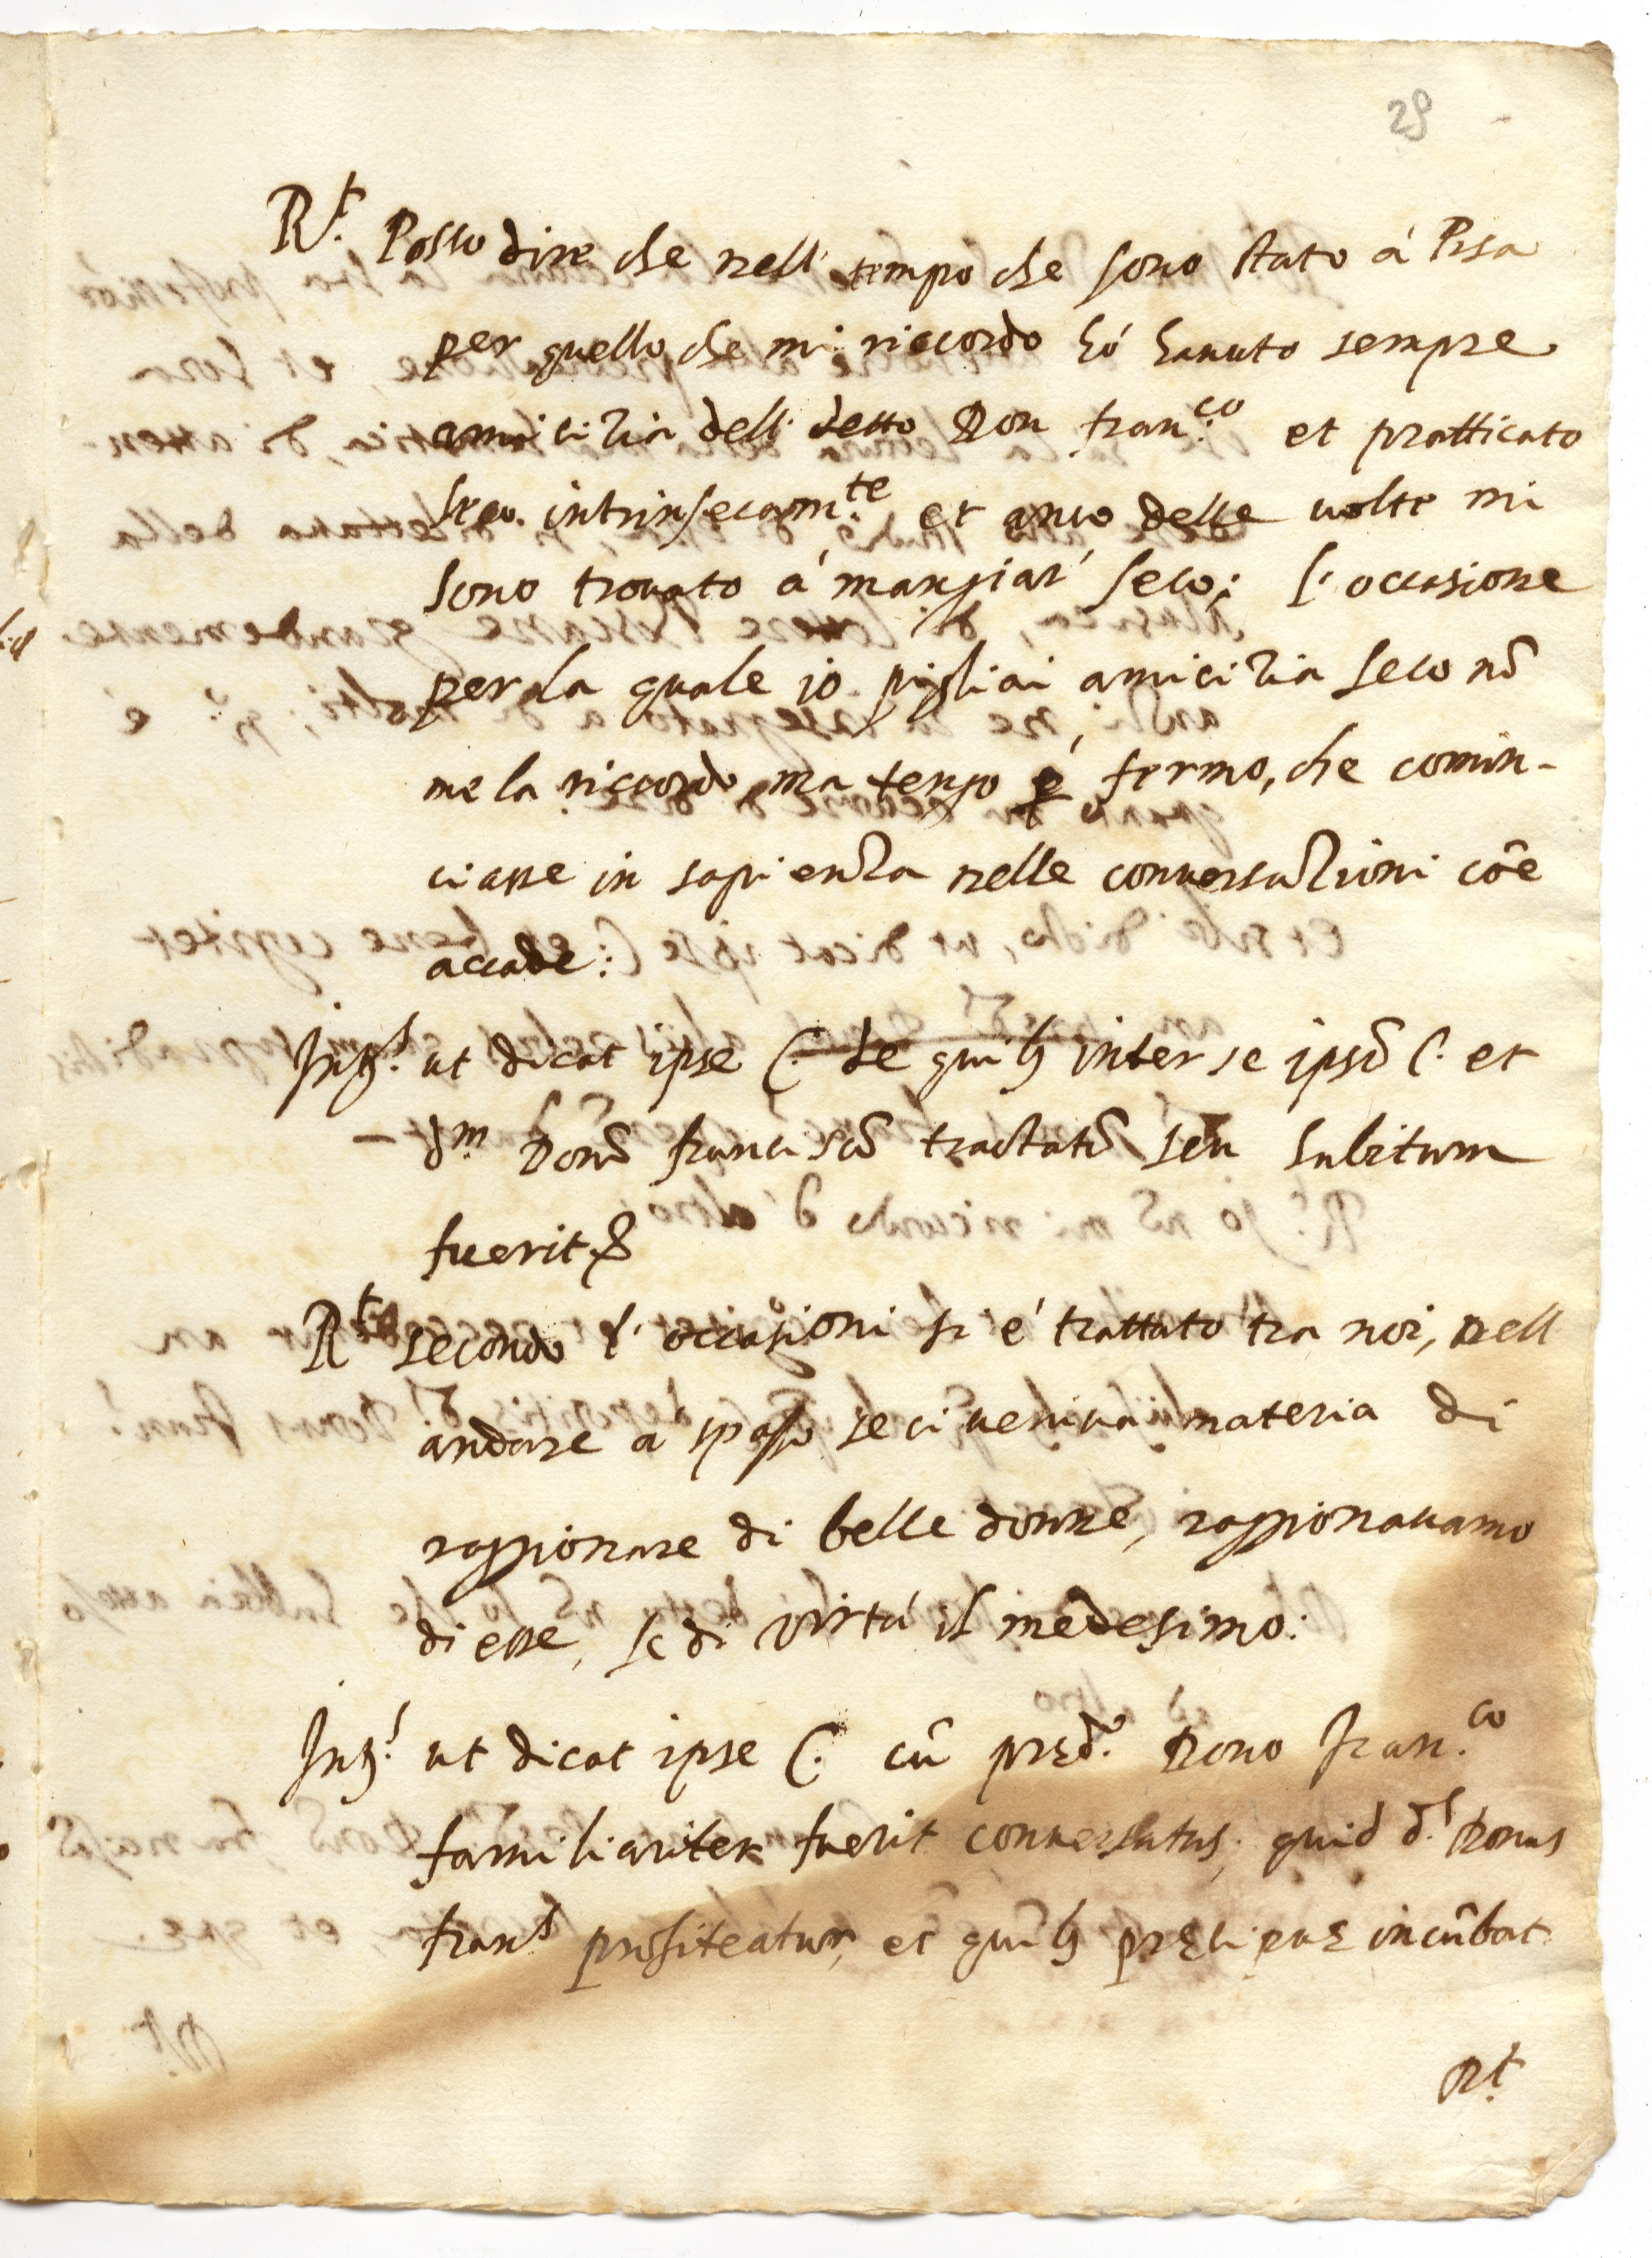 29
R.t Posso dire che nell' tempo che sono stato á Pisa
per quello che mi riccordo hó hauuto sempre
amicizia dell' detto Don fran.co et pratticato
seco intrinsecam.te et anco delle uolte mi
sono trouato á mangiar' seco; l'occasione
per la quale io pigliai amicizia seco nō
me la riccordo, ma tengo p̱ fermo, che comin-
ciasse in sapienza nelle conuersazioni cōe
accade:
Int.s ut dicat ipse C. de quib; inter se ipsū C. et
- d.m Donū franciscū tractatū seu habitum
fuerit &
R.t secondo l'occasioni si é trattato tra noi, nell
andare á spasso se ci ueniua materia di
raggionare di belle donne, raggionauamo
di esse, se di virtú il medesimo:
Int.s ut dicat ipse C. cū pręd.o Dono Fran.co
familiariter fuerit conuersatus, quid d.s Donus
fran.s profiteatur, et quib; pręcipuę incūbat
R.t